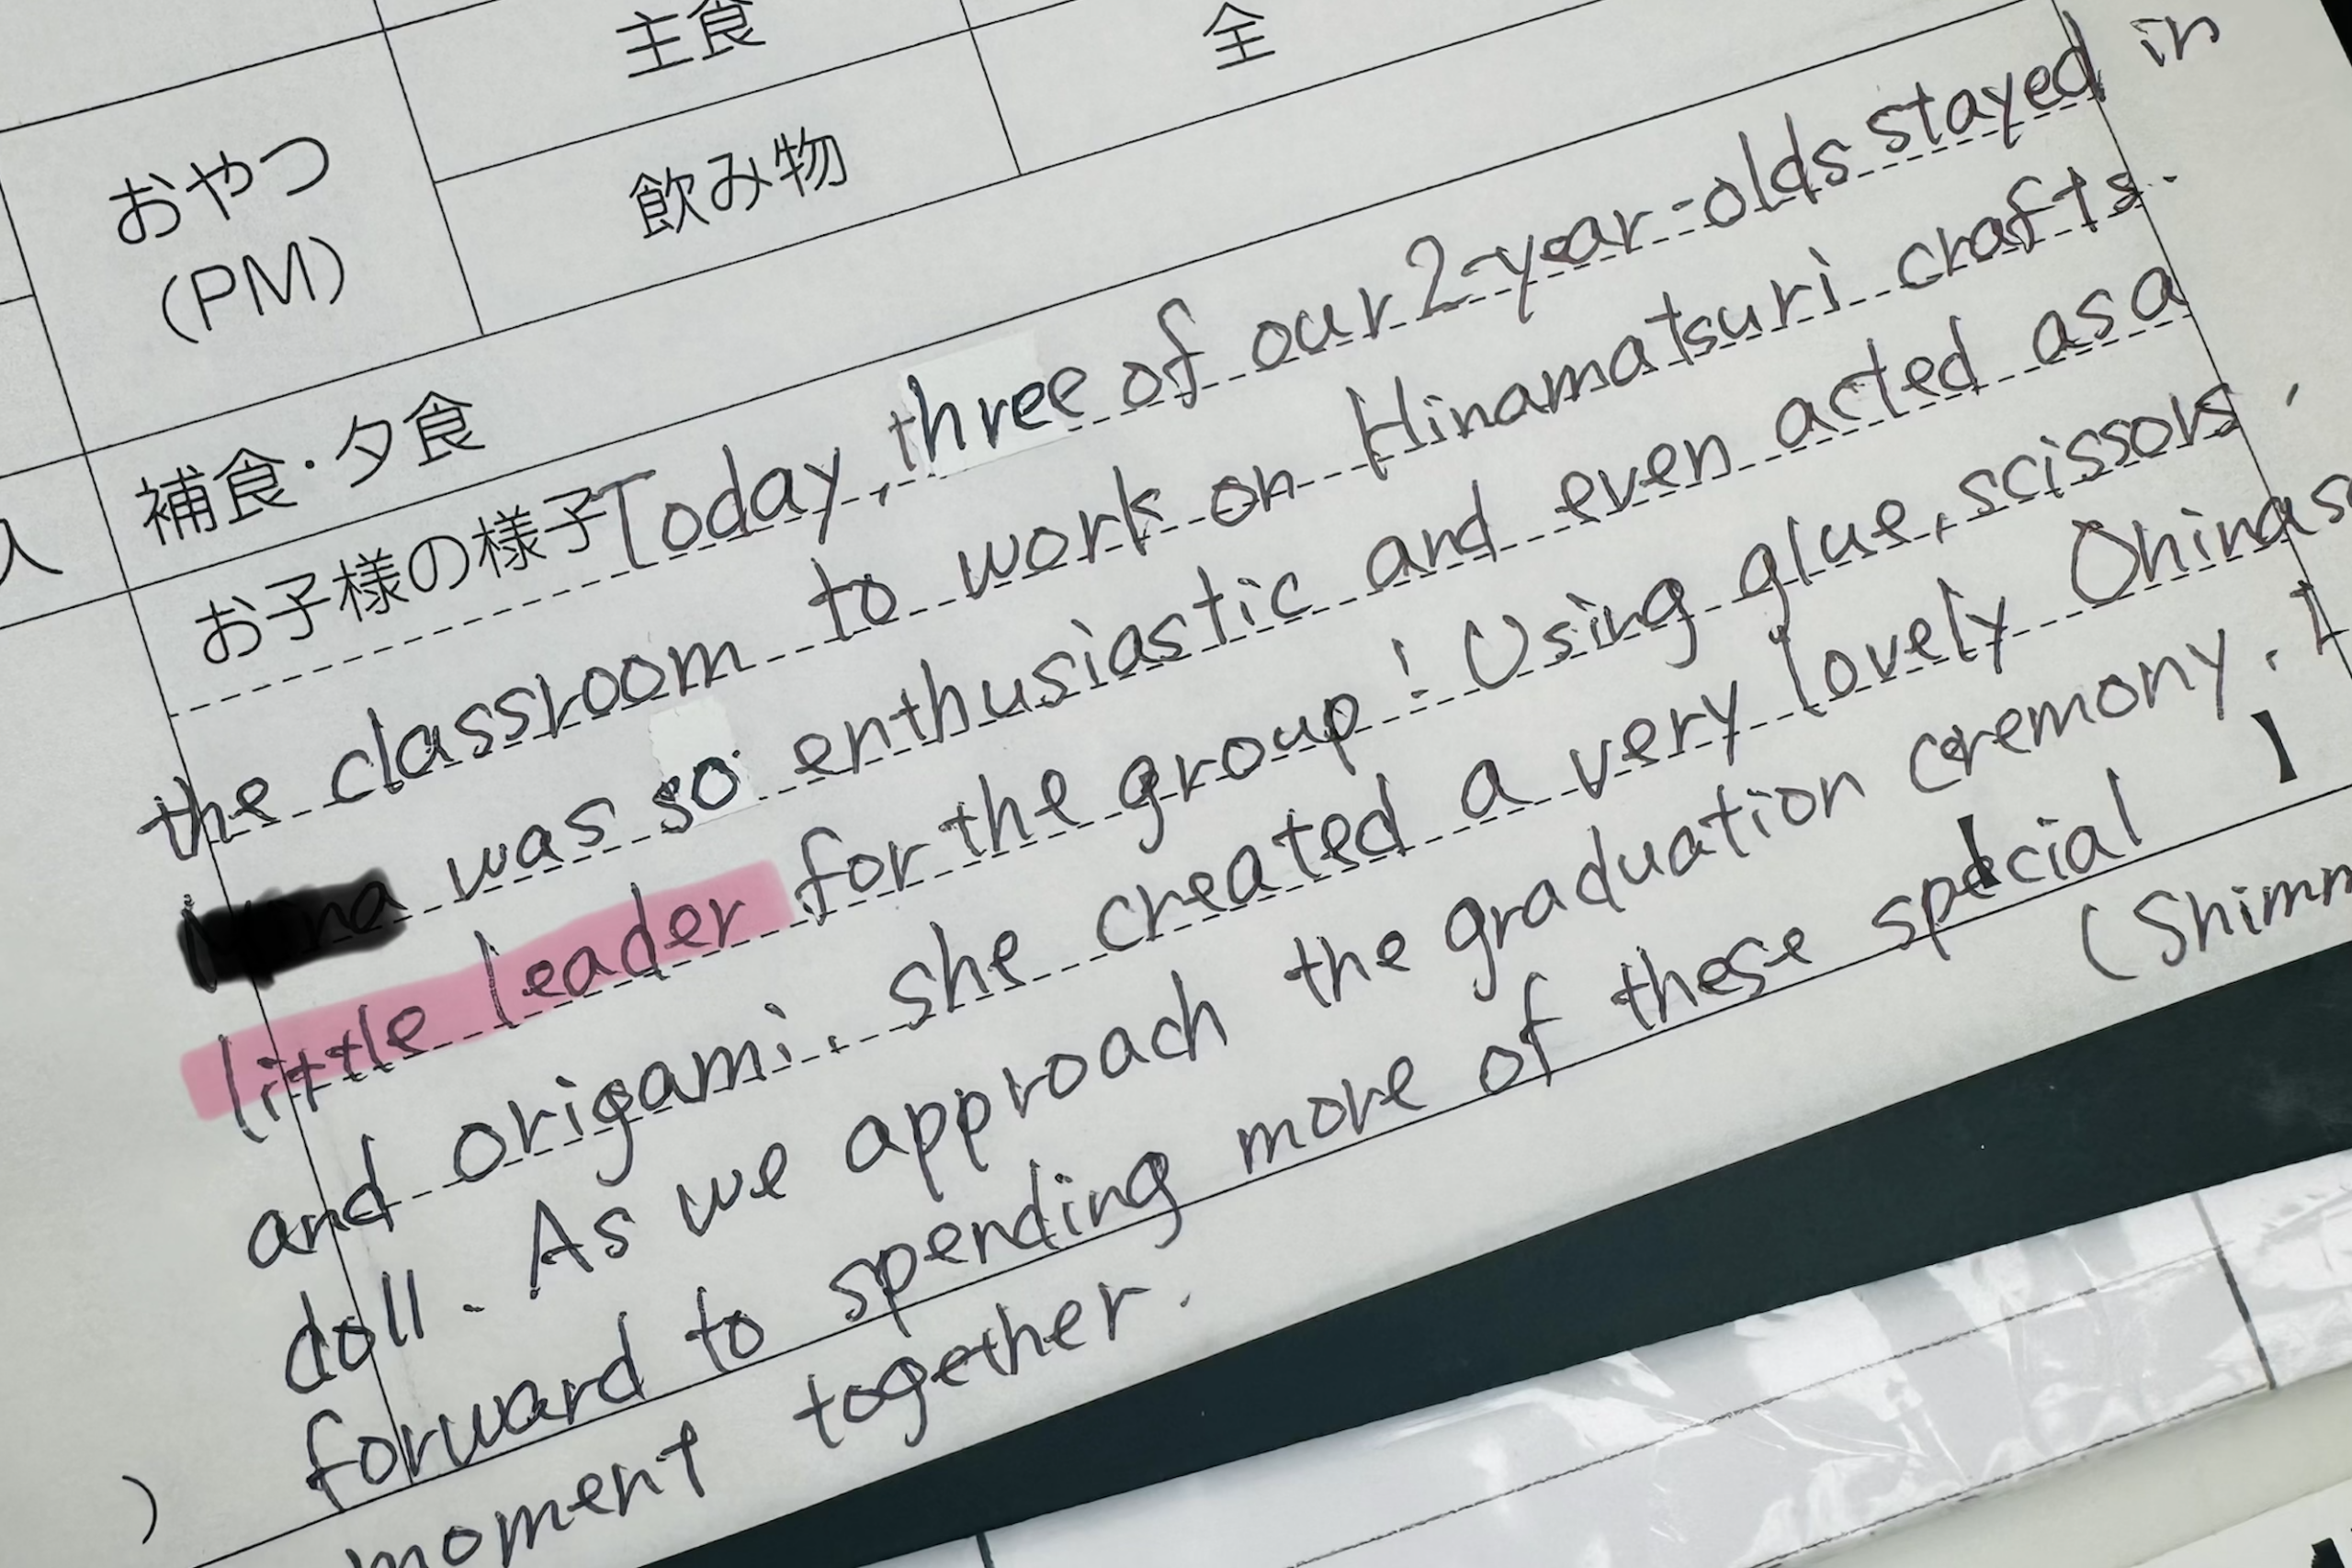 主食
全
おやつ
(PM)
飲み物
補食・夕食
お子様の様子
Today, three of our 2-year-olds stayed in
the classroom to work on Hinamatsuri crafts.
was so enthusiastic and even acted as a
little leader for the group! Using glue, scissors,
and origami, she created a very lovely Ohinasama
doll. As we approach the graduation ceremony, I
forward to spending more of these special
moment together.
(Shimm
)